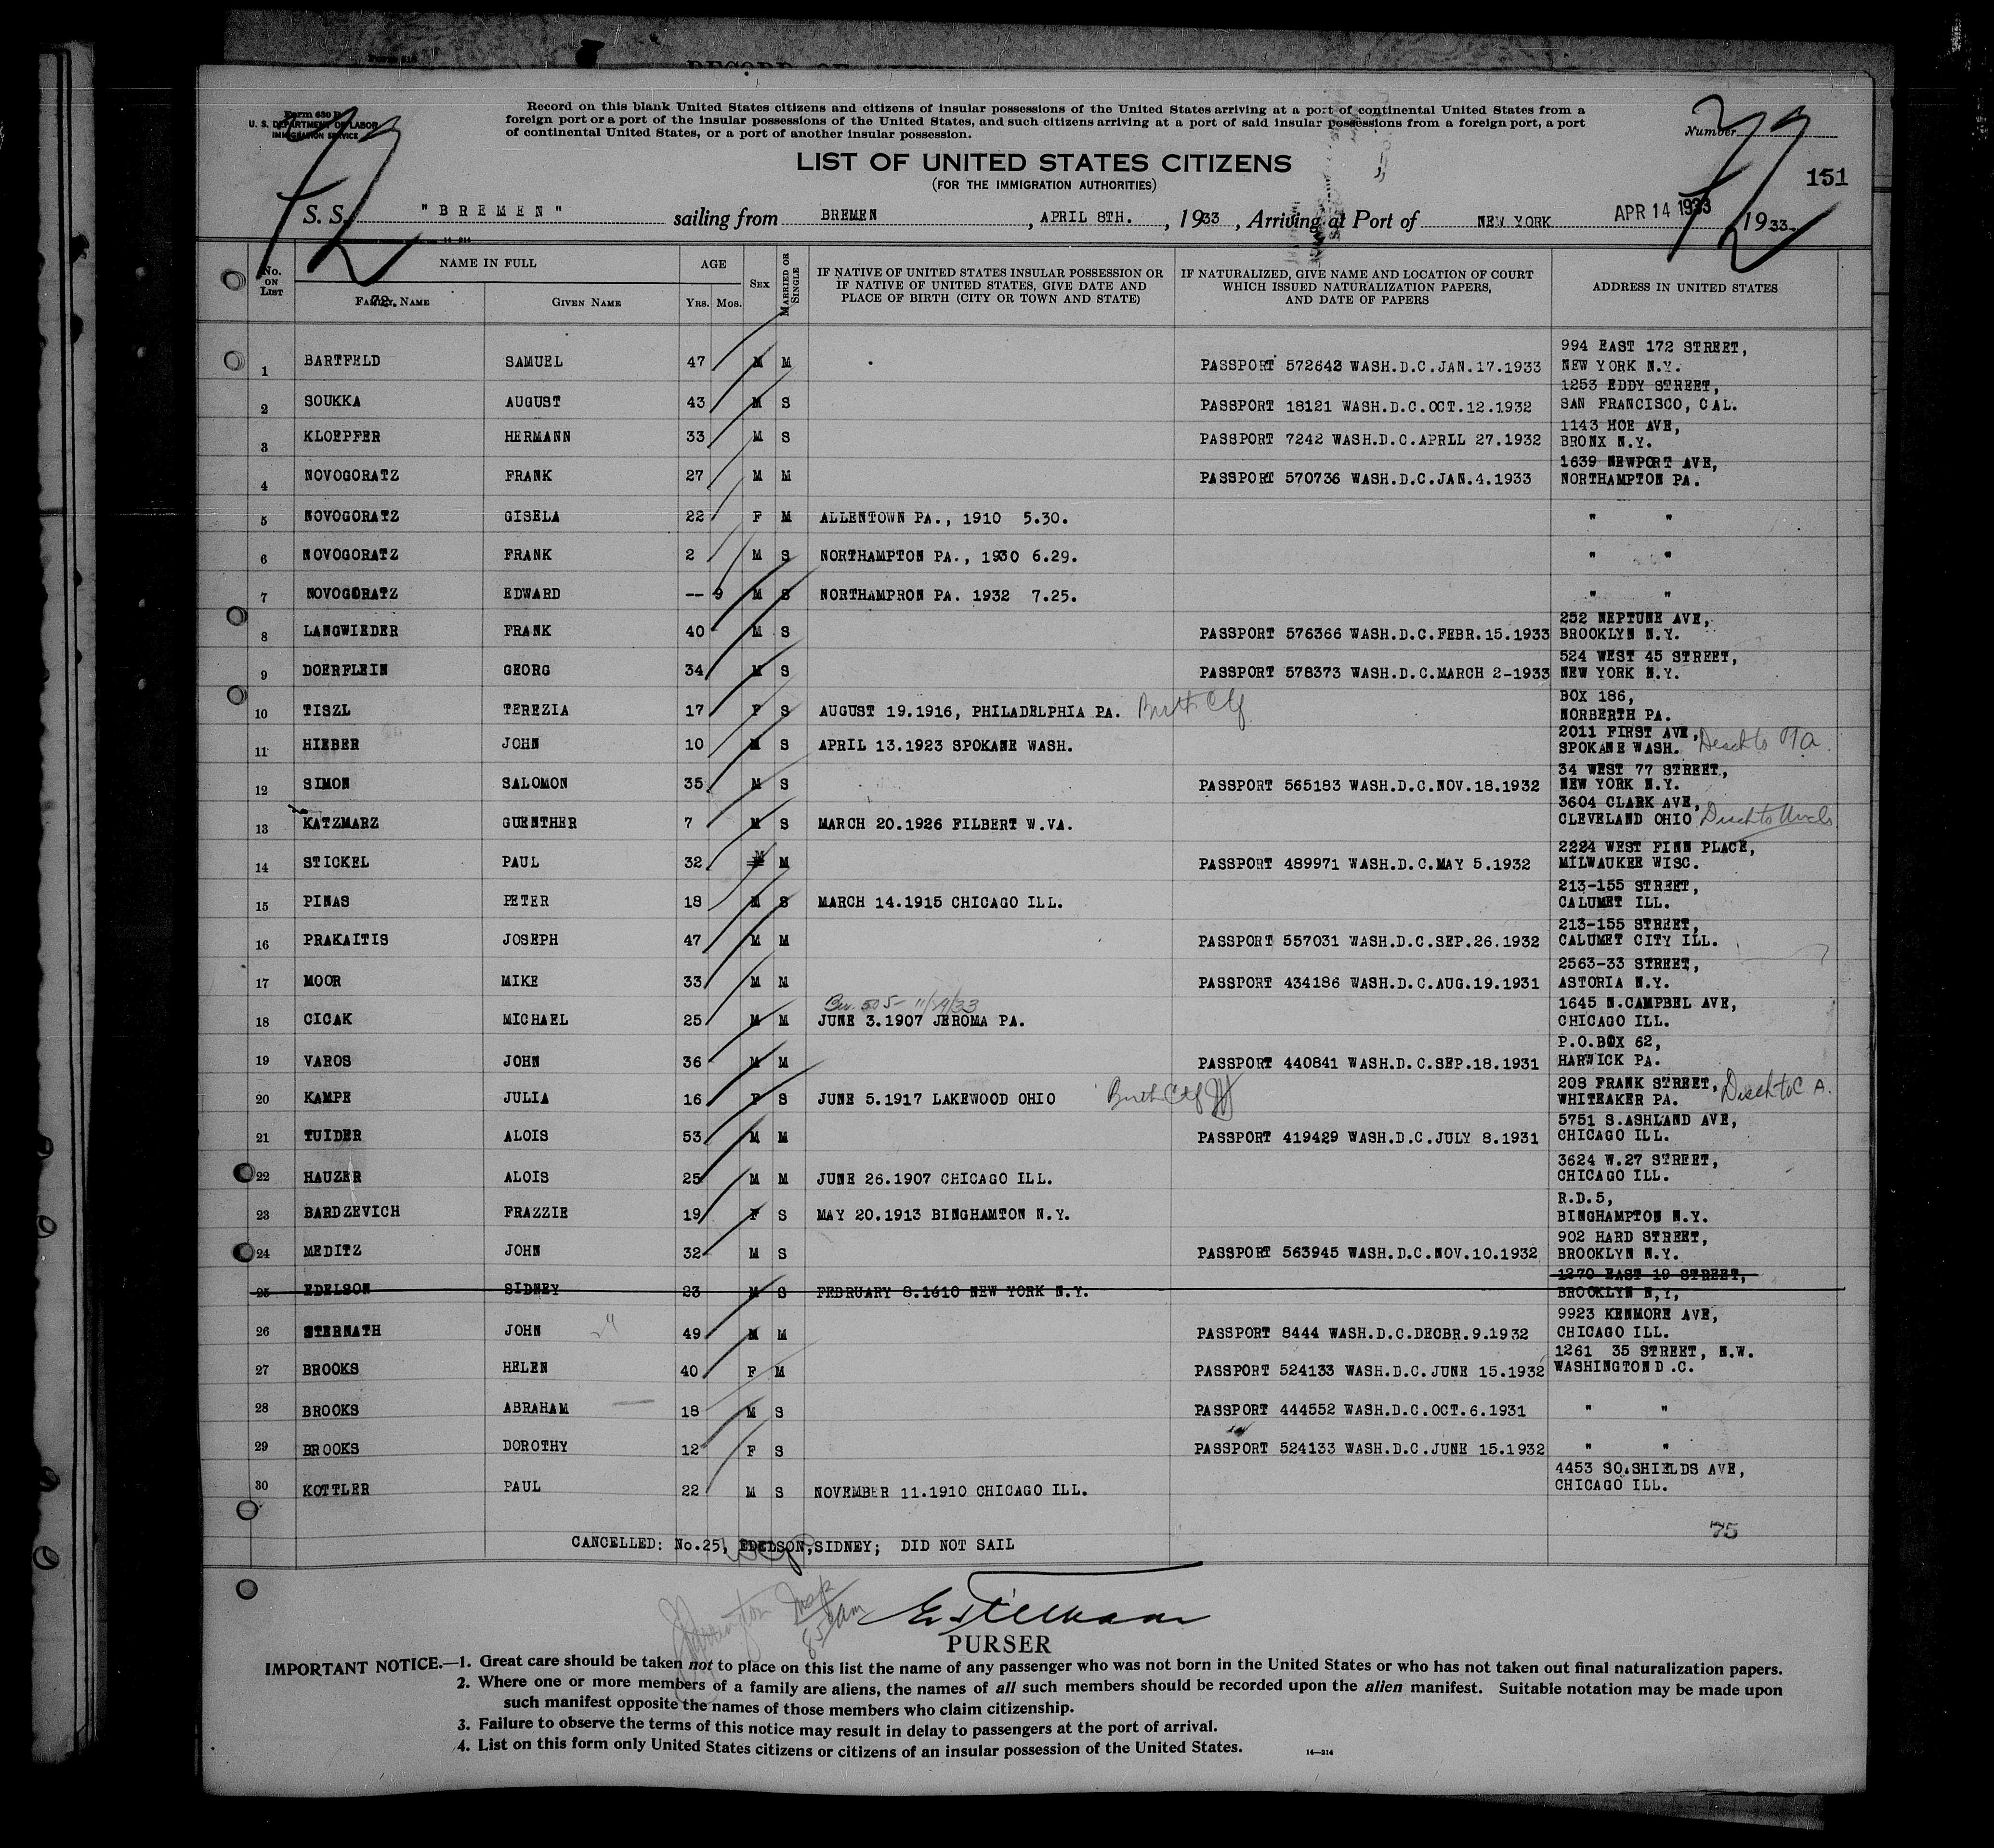 Form 630 B
U. S. DEPARTMENT OF LABOR
IMMIGRATION SERVICE
Record on this blank United States citizens and citizens of insular possessions of the United States arriving at a port of continental United States from a
foreign port or a port of the insular possessions of the United States, and such citizens arriving at a port of said insular possessions from a foreign port, a port
of continental United States, or a port of another insular possession.
Number
LIST OF UNITED STATES CITIZENS
(FOR THE IMMIGRATION AUTHORITIES)
151
S. S. "BREMEN" sailing from BREMEN, APRIL 8TH., 1933, Arriving at Port of NEW YORK APR 14 1933 1933.
14—214
No. ON LIST NAME IN FULL AGE SEX MARRIED OR SINGLE IF NATIVE OF UNITED STATES INSULAR POSSESSION OR IF NATIVE OF UNITED STATES, GIVE DATE AND PLACE OF BIRTH (CITY OR TOWN AND STATE) IF NATURALIZED, GIVE NAME AND LOCATION OF COURT WHICH ISSUED NATURALIZATION PAPERS, AND DATE OF PAPERS ADDRESS IN UNITED STATES
FAMILY NAME GIVEN NAME YRS. MOS.
72.
1 BARTFELD SAMUEL 47 M M PASSPORT 572642 WASH.D.C.JAN.17.1933 994 EAST 172 STREET, NEW YORK N.Y.
2 SOUKKA AUGUST 43 M S PASSPORT 18121 WASH.D.C.OCT.12.1932 1253 EDDY STREET, SAN FRANCISCO, CAL.
3 KLOEPFER HERMANN 33 M S PASSPORT 7242 WASH.D.C.APRLL 27.1932 1143 HOE AVE, BRONX N.Y.
4 NOVOGORATZ FRANK 27 M M PASSPORT 570736 WASH.D.C.JAN.4.1933 1639 NEWPORT AVE, NORTHAMPTON PA.
5 NOVOGORATZ GISELA 22 F M ALLENTOWN PA., 1910 5.30. " "
6 NOVOGORATZ FRANK 2 M S NORTHAMPTON PA., 1930 6.29. " "
7 NOVOGORATZ EDWARD -- 9 M S NORTHAMPRON PA. 1932 7.25. " "
8 LANGWIEDER FRANK 40 M S PASSPORT 576366 WASH.D.C.FEBR.15.1933 252 NEPTUNE AVE, BROOKLYN N.Y.
9 DOERFLEIN GEORG 34 M S PASSPORT 578373 WASH.D.C.MARCH 2-1933 524 WEST 45 STREET, NEW YORK N.Y.
10 TISZL TEREZIA 17 F S AUGUST 19.1916, PHILADELPHIA PA. Birth Ctf BOX 186, NORBERTH PA.
11 HIEBER JOHN 10 M S APRIL 13.1923 SPOKANE WASH. 2011 FIRST AVE, SPOKANE WASH. Disch to TA.
12 SIMON SALOMON 35 M S PASSPORT 565183 WASH.D.C.NOV.18.1932 34 WEST 77 STREET, NEW YORK N.Y.
13 KATZMARZ GUENTHER 7 M S MARCH 20.1926 FILBERT W.VA. 3604 CLARK AVE, CLEVELAND OHIO Disch to Uncle
14 STICKEL PAUL 32 M M PASSPORT 489971 WASH.D.C.MAY 5.1932 2224 WEST FINN PLACE, MILWAUKEE WISC.
15 PINAS PETER 18 M S MARCH 14.1915 CHICAGO ILL. 213-155 STREET, CALUMET ILL.
16 PRAKAITIS JOSEPH 47 M M PASSPORT 557031 WASH.D.C.SEP.26.1932 213-155 STREET, CALUMET CITY ILL.
17 MOOR MIKE 33 M M PASSPORT 434186 WASH.D.C.AUG.19.1931 2563-33 STREET, ASTORIA N.Y.
505- 11/29/33
18 CICAK MICHAEL 25 M M JUNE 3.1907 JEROMA PA. 1645 N.CAMPBEL AVE, CHICAGO ILL.
19 VAROS JOHN 36 M M PASSPORT 440841 WASH.D.C.SEP.18.1931 P.O.BOX 62, HARWICK PA.
20 KAMPE JULIA 16 F S JUNE 5.1917 LAKEWOOD OHIO Birth Ctf 208 FRANK STREET, WHITEAKER PA. Disch to C A.
21 TUIDER ALOIS 53 M M PASSPORT 419429 WASH.D.C.JULY 8.1931 5751 S.ASHLAND AVE, CHICAGO ILL.
22 HAUZER ALOIS 25 M M JUNE 26.1907 CHICAGO ILL. 3624 W.27 STREET, CHICAGO ILL.
23 BARDZEVICH FRAZZIE 19 F S MAY 20.1913 BINGHAMTON N.Y. R.D.5, BINGHAMPTON N.Y.
24 MEDITZ JOHN 32 M S PASSPORT 563945 WASH.D.C.NOV.10.1932 902 HARD STREET, BROOKLYN N.Y.
25 EDELSON SIDNEY 23 M S FEBRUARY 8.1610 NEW YORK N.Y. 1270 EAST 19 STREET, BROOKLYN N,Y,
26 STERNATH JOHN 49 M M PASSPORT 8444 WASH.D.C.DECBR.9.1932 9923 KENMORE AVE, CHICAGO ILL.
27 BROOKS HELEN 40 F M PASSPORT 524133 WASH.D.C.JUNE 15.1932 1261 35 STREET, N.W. WASHINGTON D.C.
28 BROOKS ABRAHAM 18 M S PASSPORT 444552 WASH.D.C.OCT.6.1931 " "
29 BROOKS DOROTHY 12 F S PASSPORT 524133 WASH.D.C.JUNE 15.1932 " "
30 KOTTLER PAUL 22 M S NOVEMBER 11.1910 CHICAGO ILL. 4453 SO.SHIELDS AVE, CHICAGO ILL.
75
CANCELLED: No.25, EDELSON,SIDNEY; DID NOT SAIL
Insp
PURSER
IMPORTANT NOTICE.—1. Great care should be taken not to place on this list the name of any passenger who was not born in the United States or who has not taken out final naturalization papers.
2. Where one or more members of a family are aliens, the names of all such members should be recorded upon the alien manifest. Suitable notation may be made upon
such manifest opposite the names of those members who claim citizenship.
3. Failure to observe the terms of this notice may result in delay to passengers at the port of arrival.
4. List on this form only United States citizens or citizens of an insular possession of the United States.
14—214